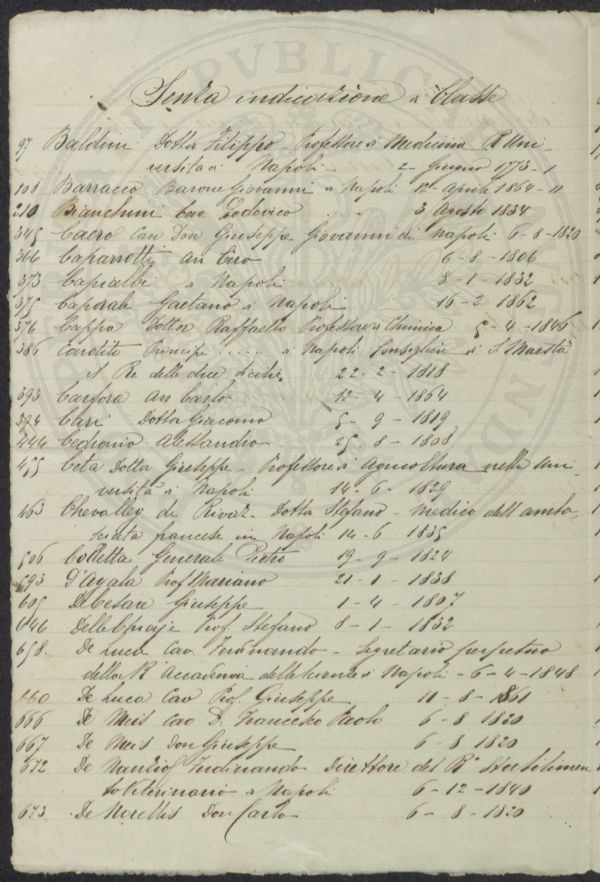 Senza indicazione di Classe
97 Baldini Dottor Filippo - Professore di Medicina R Uni-
versità di Napoli - 2 - Giugno 1773 - 1
108 Barracco Barone Giovanni di Napoli Aprile 1864 - 11
210 Bianchini Cav Lodovico . . 3 Agosto 1834
345 Can Don Giuseppe Giovanni di Napoli 6 - 8 - 1820
366 Caparrotti Ciro 6 - 8 - 1806
373 Capialbi di Napoli 8 - 1 - 1832
375 Caporale Gaetano di Napoli 16 - 2 1862
376 Cappa Dottor Raffaello Professore di Chimica 5 - 4 - 1846
386 Cardito Principe ..... di Napoli Consigliere di S. Maestà
il Re delle due Sicilie. 22 - 2 - 1818
393 Carfora Carlo 12 - 4 - 1864
394 Dottor Giacomo 5 - 9 - 1819
444 Cedronio Alessandro . 25 - 8 - 1808
455 Ceta Dottor Giuseppe - Professore di Agricoltura nella Uni-
versità di Napoli 14 - 6 - 1829
463 Chevalley de Rivaz - Dottor Stefano - Medico dell'amba-
sciata francese in Napoli 14 - 6 1835
506 Colletta Generale Pietro 19 - 9 - 1824
593 D'Ayala Prof Mariano 21 - 1 - 1838
605 De Cesare Giuseppe 1 - 4 - 1807
646 Delle Chiaje Prof. Stefano 8 - 1 - 1832
658. De Luca Cav. Ferdinando - Segretario perpetuo
della R Accademia delle Scienze di Napoli - 6 - 4 - 1848
660 De Luca Cav Prof. Giuseppe 11 - 8 - 1861
666 De Meis Cav D. Francesco Paolo 6 - 8 - 1820
667 De Meis Don Giuseppe 6 - 8 1820
672 De Nanzio Ferdinando Direttore del R Stabilimen
to Veterinario di Napoli 6 - 12 - 1840
673 De Don Carlo 6 - 8 - 1820